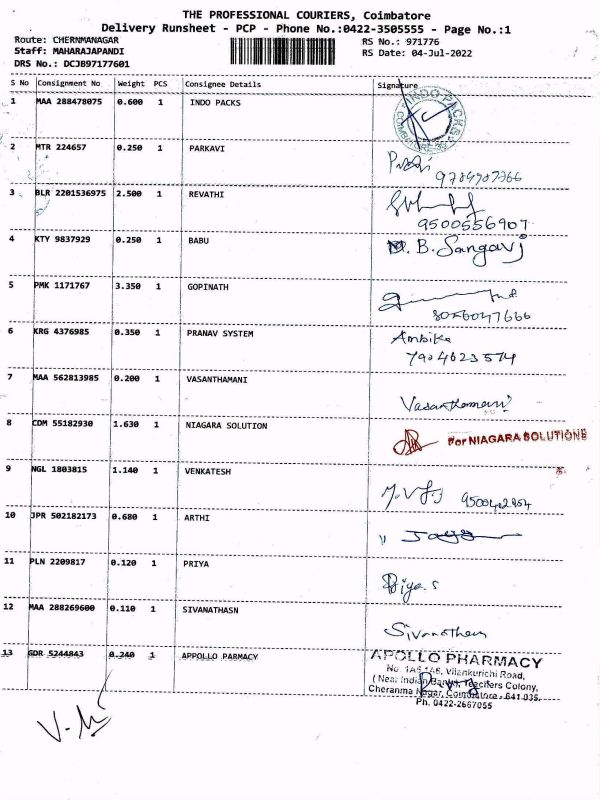 THE PROFESSIONAL COURIERS, Coimbatore
Delivery Runsheet - PCP - Phone No.:0422-3505555 - Page No.:1
Route: CHERNMANAGAR RS No.: 971776
Staff: MAHARAJAPANDI RS Date: 04-Jul-2022
DRS No.: DCJB97177601
S No Consignment No Weight PCS Consignee Details Signature
1 MAA 288478075 0.600 1 INDO PACKS
INDO PACKS
COIMBATORE
2 MTR 224657 0.250 1 PARKAVI
3 BLR 2201536975 2.500 1 REVATHI
9500556907
4 KTY 9837929 0.250 1 BABU B. Sangavi
5 PMK 1171767 3.350 1 GOPINATH
8056047666
6 KRG 4376985 0.350 1 PRANAV SYSTEM Ambika
7904623574
7 MAA 562813985 0.200 1 VASANTHAMANI
Vasanthamani
8 CDM 55182930 1.630 1 NIAGARA SOLUTION
For NIAGARA SOLUTIONS
9 NGL 1803815 1.140 1 VENKATESH
10 JPR 502182173 0.680 1 ARTHI
11 PLN 2209817 0.120 1 PRIYA
Priya.S
12 MAA 288269600 0.110 1 SIVANATHASN
Sivanathan
13 GDR 5244843 0.240 1 APPOLLO PARMACY
APOLLO PHARMACY
Vilankurichi Road,
( Near Indian Bank), Teachers Colony,
Cheranma Nagar, Coimbatore - 641 035.
Ph. 0422-2667055